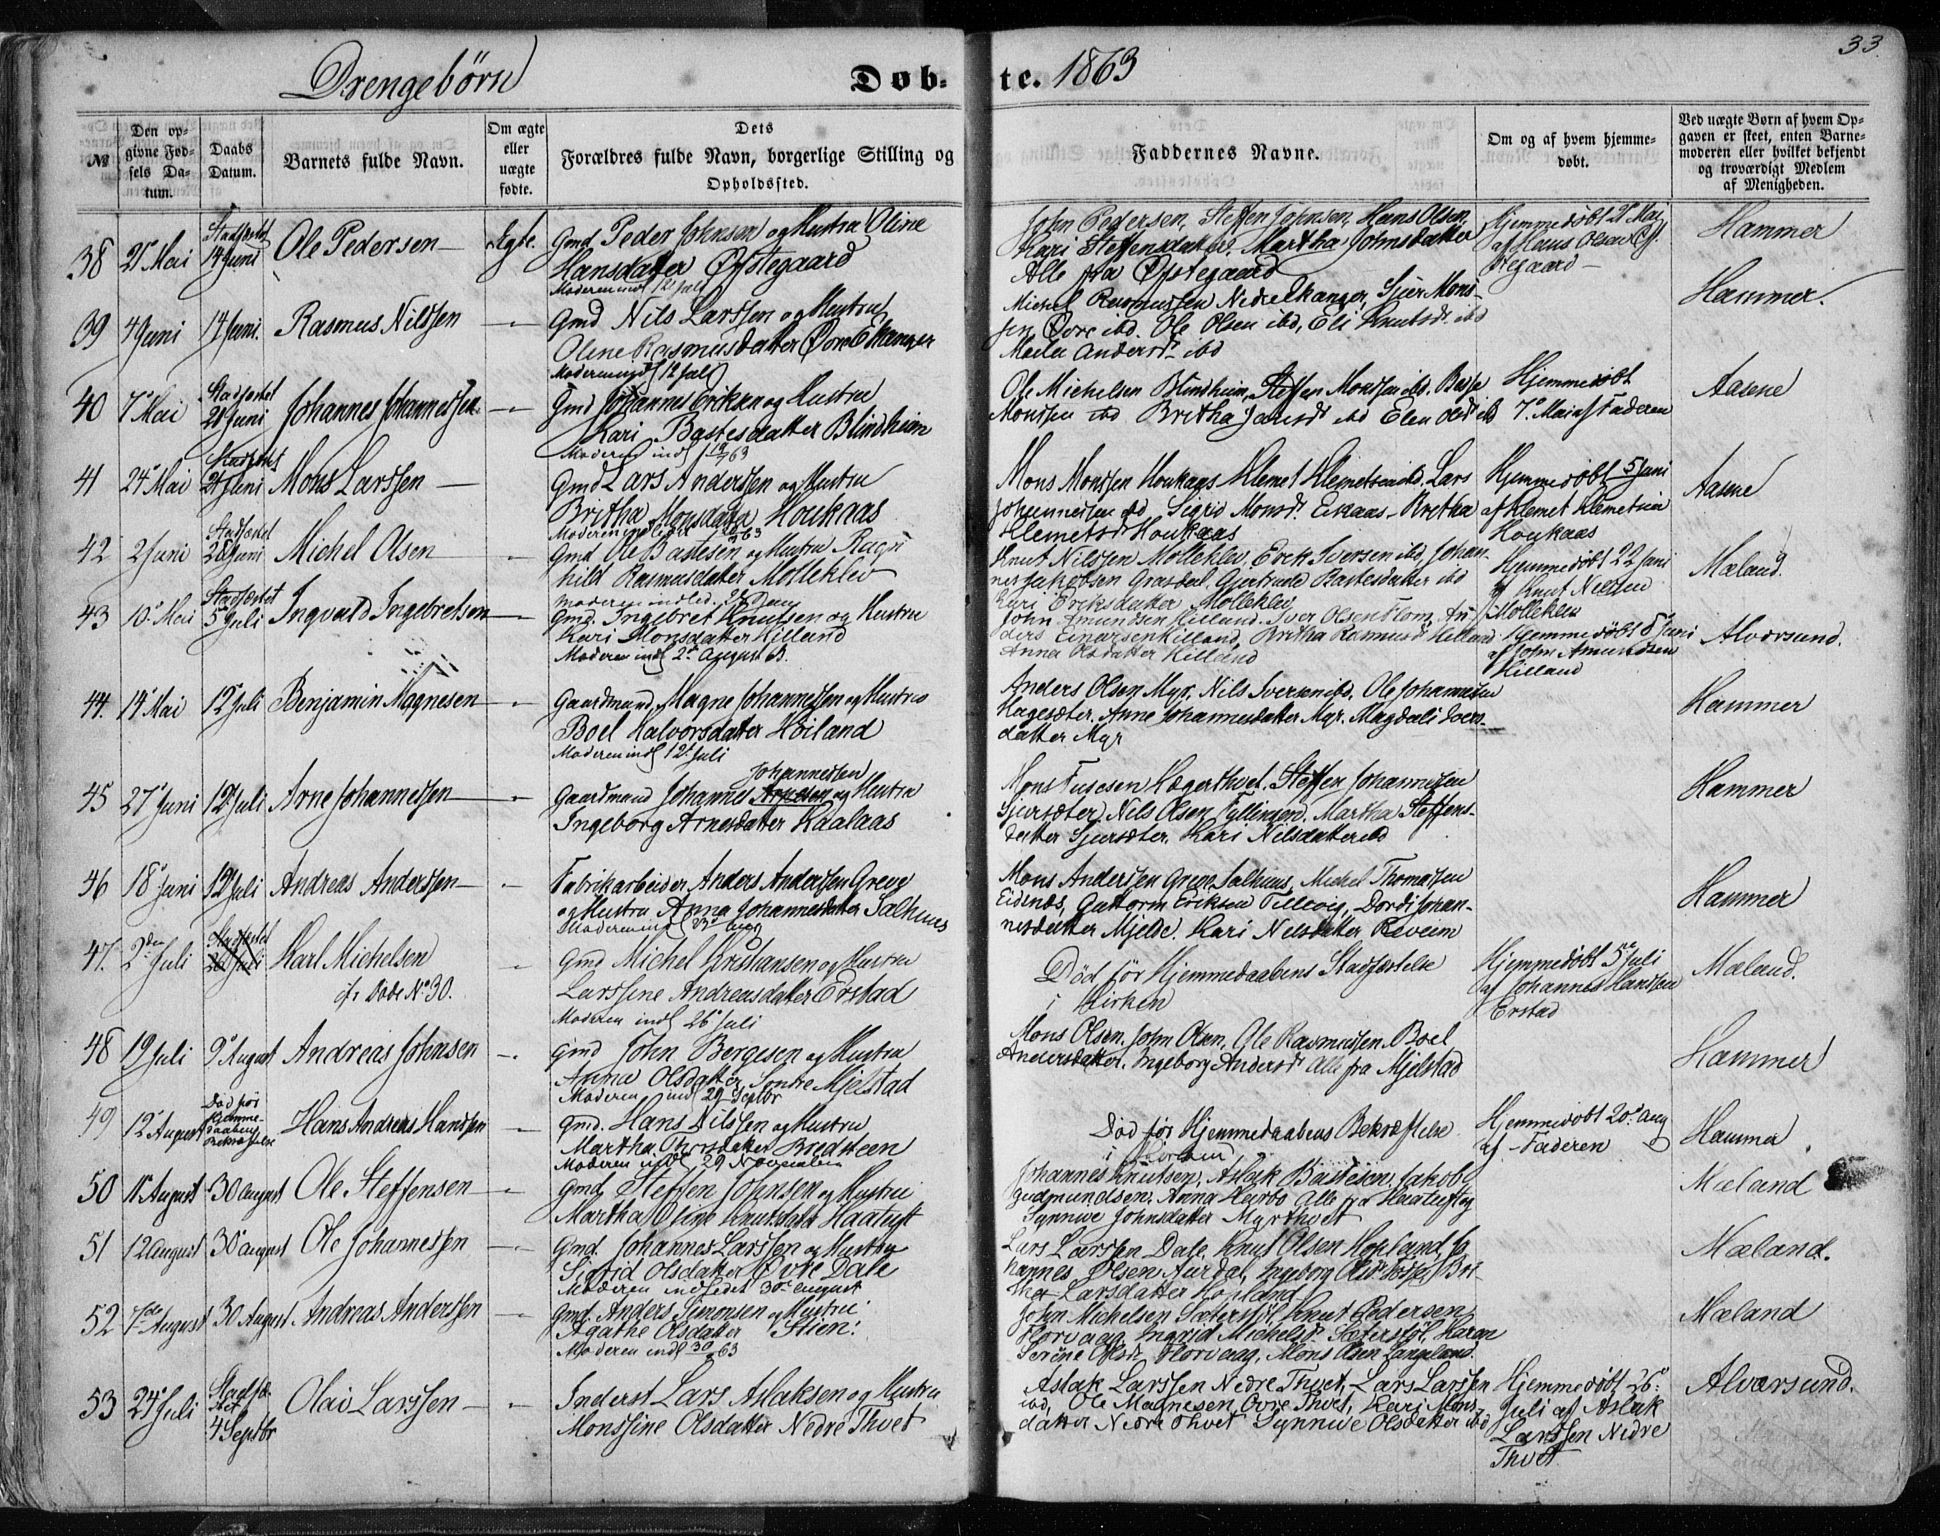 33.
Drengebörn
Døb-te. 1863
№
Den opgivne Fødsels Datum.
Daabs Datum.
Barnets fulde Navn.
Om ægte eller uægte fødte.
Dets Forældres fulde Navn, borgerlige Stilling og Opholdssted.
Faddernes Navne.
Om og af hvem hjemmedøbt.
Ved uægte Børn af hvem Opgaven er skeet, enten Barnemoderen eller hvilket bekjendt og troværdigt Medlem af Menigheden.
38 21 Mai Stadfæstet 14 Juni Ole Pedersen Ægte. Gmd Peder Johnsen og Hustru Oline
Hansdatter Øvstegaard
John Pedersen, Steffen Johnsen, Hans Olsen,
Kari Steffensdatter, Martha Johnsdatter
Alle fra Øvstegaard
Hjemmedøbt 21 Mai
af Hans Olsen
Hammer
Moderen indl 12 Juli
39 4 Juni 14 Juni. Rasmus Nilssen Gmd Nils Larssen og Hustru
Oline Rasmusdatter Øvre Ekanger
Michel Rasmussen Nedre Ekanger, Sjur Mons-
sen Øvre ibd. Ole Olsen ibd, Eli Knutsdr ibd
Andersdr ibd
Hammer.
Moderen indl 12 Juli
40 7 Mai Stadfæstet 21 Juni Johannes Johannessen Gmd Johannes Eriksen og Hustru
Kari Bastesdatter Blindheim
Ole Michelsen Blindheim, Steffen Monssen ibd. Baste
Monssen ibd Britha ibd Elen Olsdr ibd
Hjemmedøbt
7 Mai af Faderen
Aasene
Moderen indl 63
41 24 Mai Stadfæstet 21 Juni Mons Larssen Gmd Lars Anderssen og Hustru
Britha Monsdatter Houkaas
Mons Monssen Houkaas Klemet Klemetsen ibd. Lars
Johannessen ibd Sigrid Monsdr. Eikaas - Britha
Klemetsdr Houkaas
Hjemmedøbt 5 Juni
af Klemet Klemetsen
Houkaas
Aasne
Moderen indledet 63
42 2 Juni Stadfæstet 28 Juni Michel Olsen Gmd Ole Bastesen og Hustru Ragn
hild Rasmusdatter Molleklev
Knut Nilssen Molleklev, Erik Iversen ibd, Johan-
nes Jakobsen Grasdal, Gjertrud Bastesdatter ibd
Kari Eriksdatter Molleklev
Hjemmedøbt 22 Juni
af Knut Nilssen
Molleklev
Mæland.
43 10 Mai Stadfæstet 5 Juli Ingvald Ingebretsen Gmd. Ingebret Knutsen og Hustru
Kari Monsdatter Hilland
Moderen indl 2 August 63.
John Amundsen Hilland. Iver Olsen Flom, An-
ders Einarsen Hilland, Britha Rasmusdr Hilland
Anna Olsdatter Hilland
Hjemmedøbt 8 Juni
af John Amundsen
Hilland
Alversund.
44. 14 Mai 12 Juli Benjamin Magnesen Gaardmand Magne Johannessen og Hustru
Boel Halvorsdatter Höiland
Moderen indl 12 Juli
Anders Olsen Myr, Nils Iversen ibd. Ole Johannessen
Hagesæter. Anne Johannesdatter Myr. Magdali Ivers-
datter Myr
Hammer
45 27 Juni 12 Juli Arne Johannessen Gaardmand Johannes Johannessen og Hustru
Ingeborg Arnesdatter Kaalaas
Mons Hægerthvet. Steffen Johannessen
Sjursæter, Nils Olsen Fyllingen, Martha Steffens-
datter Sjursæter. Kari Nilsdatter ibd
Hammer
46 18 Juni 12 Juli Andreas Anderssen Fabrikarbeider Anders Anderssen Greve
og Hustru Anna Johannesdatter Salhuus
Mons Andersen Greve Salhuus, Michel Thomassen
Eidsnæs, Guttorm Eriksen Tellevig, Dordi Johan-
nesdatter Mjelde. Kari Nilsdatter
Hammer
47. 2den Juli Stadfæstet 26 Juli Karl Michelsen
cfr Døde No 30.
Gmd Michel og Hustru
Larssine Andreasdatter Erstad
Moderen indl 26 Juli
Død før Hjemmedaabens Stadfæstelse
i Kirken
Hjemmedøbt 5 Juli
af Johannes Hanssen
Erstad
Mæland.
48 19 Juli 9 August Andreas Johnsen Gmd John Børgesen og Hustru
Anna Olsdatter Søndre Mjelstad
Moderen indl 29 Septbr
Mons Olsen. John Olsen, Ole Rasmussen, Boel
Andersdatter. Ingeborg Andersdr Alle fra Mjelstad
Hammer
49 12 August Død før Hjemmedaabens Bekræftelse Hans Andreas Hanssen Gmd. Hans Nilssen og Hustru
Martha Bredsteen
Moderen indl 29 November
Død før Hjemmedaabens Bekræftelse
i Kirken
Hjemmedøbt 20 Aug
af Faderen
Hammer
50 11 August 30 August Ole Steffensen Gmd Steffen Johnsen og Hustru
Martha Oline Knutsdatter Haatuft
Johannes Knutsen, Aslak Bastesen, Jakob
Gudmundsen. Anna alle fra Haatuft og
Synnive Johnsdatter Myrthvet
Mæland
51 12 August 30 August Ole Johannessen Gmd. Johannes Larssen og Hustru
Sigrid Olsdatter Øvre Dale
Moderen indledet 30 August
Lars Larssen Dale, Knut Olsen Hopland, Jo-
hannes Olsen Aurdal, Ingeborg Olsdr
Larsdatter Hopland
Mæland.
52 7de August 30 August Andreas Anderssen Gmd. Anders Simonsen og Hustru
Agathe Olsdatter Stien.
Moderen indl 30 63
John Michelsen Sæterstøl, Knut Pedersen
Florvaag, Ingrid Michelsdr Sæterstøl, Karen
Serine Olsdr Florvaag, Mons Olsen Langeland.
Mæland
53 24 Juli Stadfæstet 4 Septbr Olai Larssen Inderst Lars Aslaksen og Hustru
Monssine Olsdatter Nedre Thvet
Aslak Larssen Nedre Thvet, Lars Larssen
ibd, Ole Magnesen, Øvre Thvet, Kari Mons
datter Nedre Thvet Synnive Olsdatter ibd
Hjemmedøbt 26
Juli af Aslak
Larssen Nedre
Thvet
Alversund.